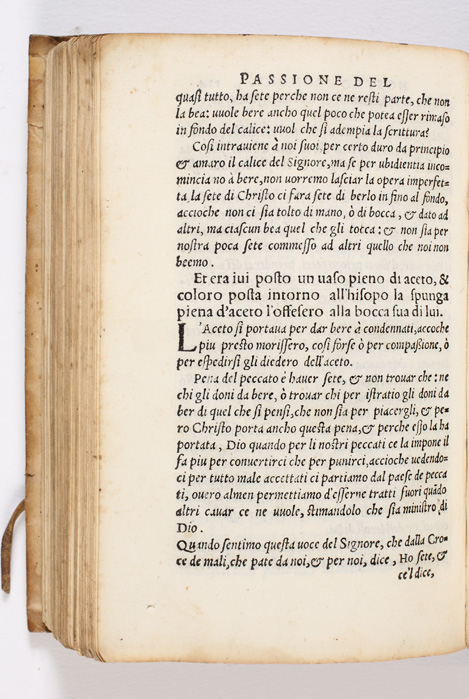 PASSIONE DEL
quasi tutto, ha sete perche non ce ne resti parte, che non
la bea: vuole bere ancho quel poco che potea esser rimaso
in fondo del calice: vuol che si adempia la scrittura?
Così intrauiene à noi suoi, per certo duro da principio
& amaro il calice del Signore, ma se per ubidientia inco-
mincia no à bere, non uorremo lasciar la opera imperfet-
ta, la sete di Christo ci fara sete di berlo in fino al fondo,
accioche non ci sia tolto di mano, ò di bocca, & dato ad
altri, ma ciascun bea quel che gli tocca: & non sia per
nostra poca sete commesso ad altri quello che noi non
beemo.
Et era iui posto un uaso pieno di aceto, &
coloro posta intorno all'hisopo la spunga
piena d'aceto l'offesero alla bocca sua di lui.
L'Aceto si portaua per dar bere à condennati, accoche
piu presto morissero, così forse ò per compassione, ò
per espedirsi gli diedero dell'aceto.
Pena del peccato è hauer sete, & non trouar che: ne
chi gli doni da bere, ò trouar chi per istratio gli doni da
ber di quel che si pensi, che non sia per piacergli, & pe-
ro Christo porta ancho questa pena, & perche esso la ha
portata, Dio quando per li nostri peccati ce la impone il
fa piu per conuertirci che per punirci, accioche uedendo-
ci per tutto male accettati ci partiamo dal paese de pecca
ti, ouero almen permettiamo d'esserne tratti fuori quãdo
altri cauar ce ne uuole, stimandolo che sia ministro di
Dio.
Quando sentimo questa uoce del Signore, che dalla Cro-
ce de mali, che pate da noi, & per noi, dice, Ho sete, &
ce'l dice,